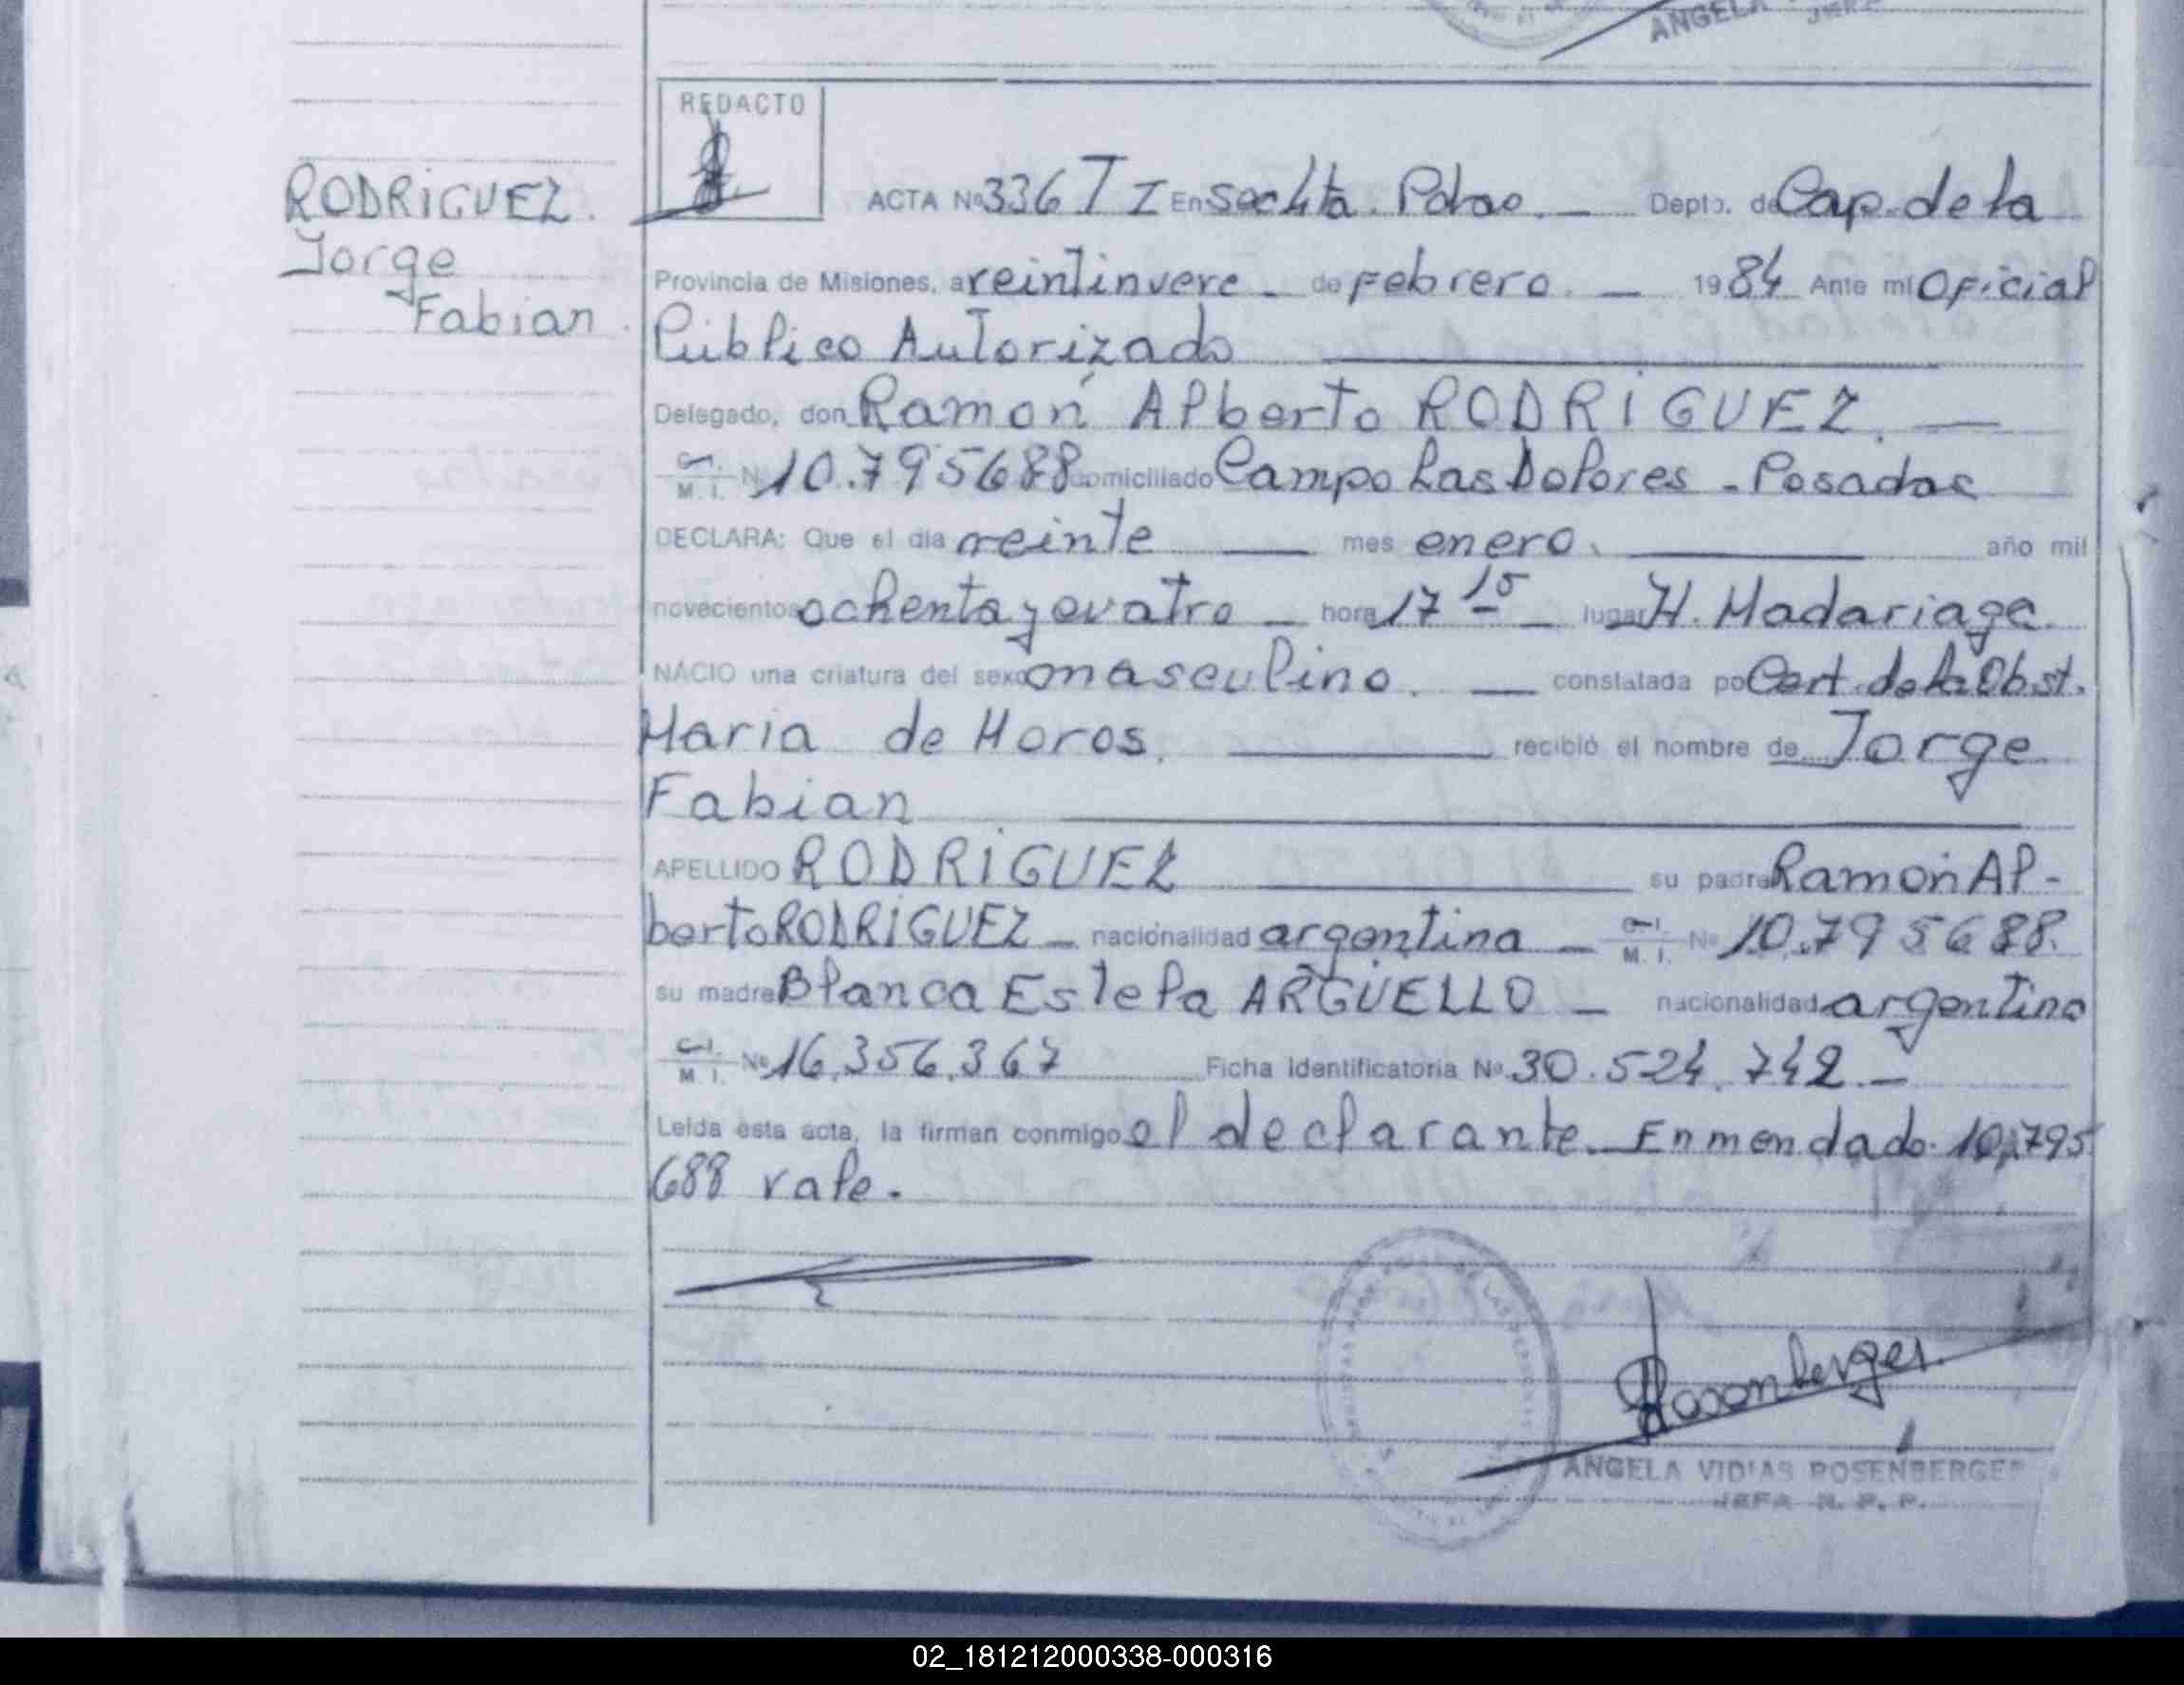 ANGELA
REDACTO
RODRIGUEZ.
Jorge
Fabian.
ACTA Nº 336 T I En Secc 4ta. Pdas. — Depto. de Cap. de la
Provincia de Misiones, a veintinueve - de Febrero. — 1984 Ante mi Oficial
Público Autorizado
Delegado, don Ramón Alberto RODRIGUEZ. —
C.I. M. I. Nº 10.795688 domiciliado Campo Las Dolores - Posadas
DECLARA: Que el día veinte — mes enero. — año mil
novecientos ochenta y cuatro — hora 17 15 — lugar H. Madariaga.
NACIO una criatura del sexo masculino. — constatada por Cert. de la Obst.
Maria de Horos. — recibió el nombre de Jorge
Fabian
APELLIDO RODRIGUEZ — su padre Ramón Al-
berto RODRIGUEZ — nacionalidad argentina — C.I. M. I. Nº 10.795688.
su madre Blanca Estela ARGÜELLO — nacionalidad argentina
C.I. M. I. Nº 16.356.367 Ficha Identificatoria Nº 30.524.742. —
Leída esta acta, la firman conmigo el declarante. Enmendado. 10.795
688 vale.
Rosenberger.
ANGELA VIDIAS ROSENBERGER
JEFA N. P. P.
02_181212000338-000316